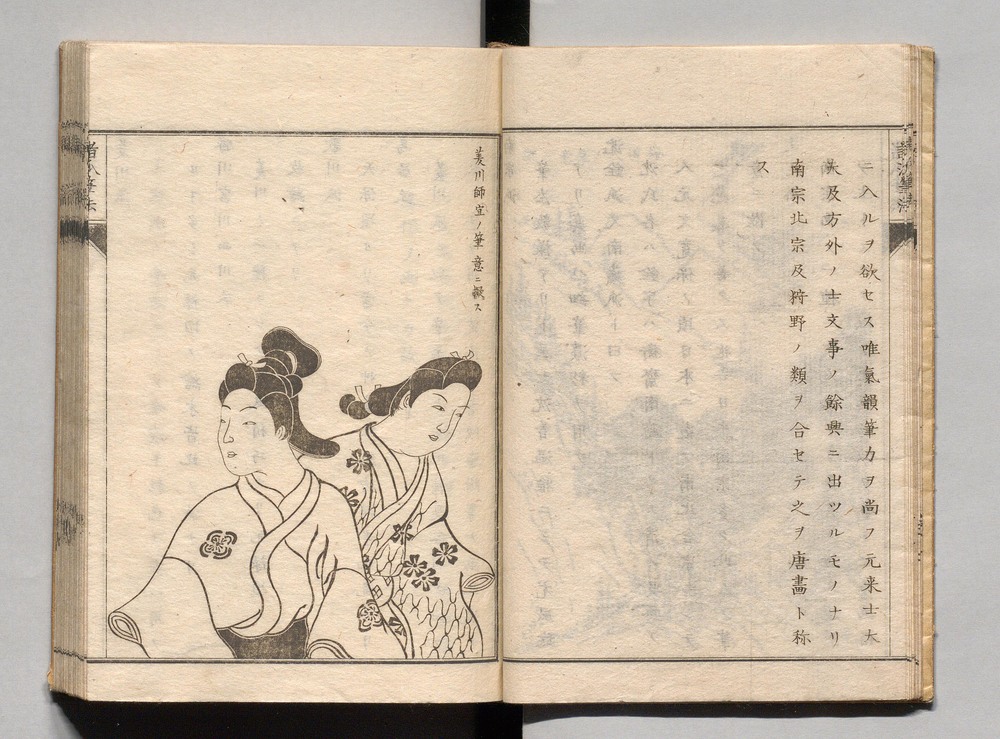 ニ入ルヲ欲セス唯氣韻筆力ヲ尚フ元来士大
夫及方外ノ士文事ノ餘興ニ出ツルモノナリ
南宗北宗及狩野ノ類ヲ合セテ之ヲ唐畵ト称
ス
菱川師宣ノ筆意ニ擬ス